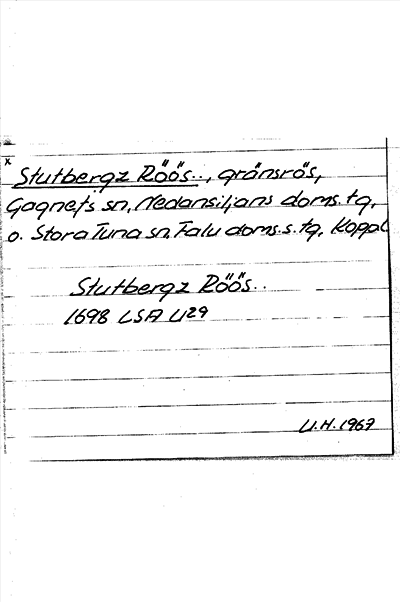 x
Stutbergz Röös.., gränsrös,
Gagnefs sn, Nedansiljans doms. tg,
o. Stora Tuna sn, Falu doms.s. tg, Koppal
Stutbergz Röös..
1698 LSA U29
U.H. 1967